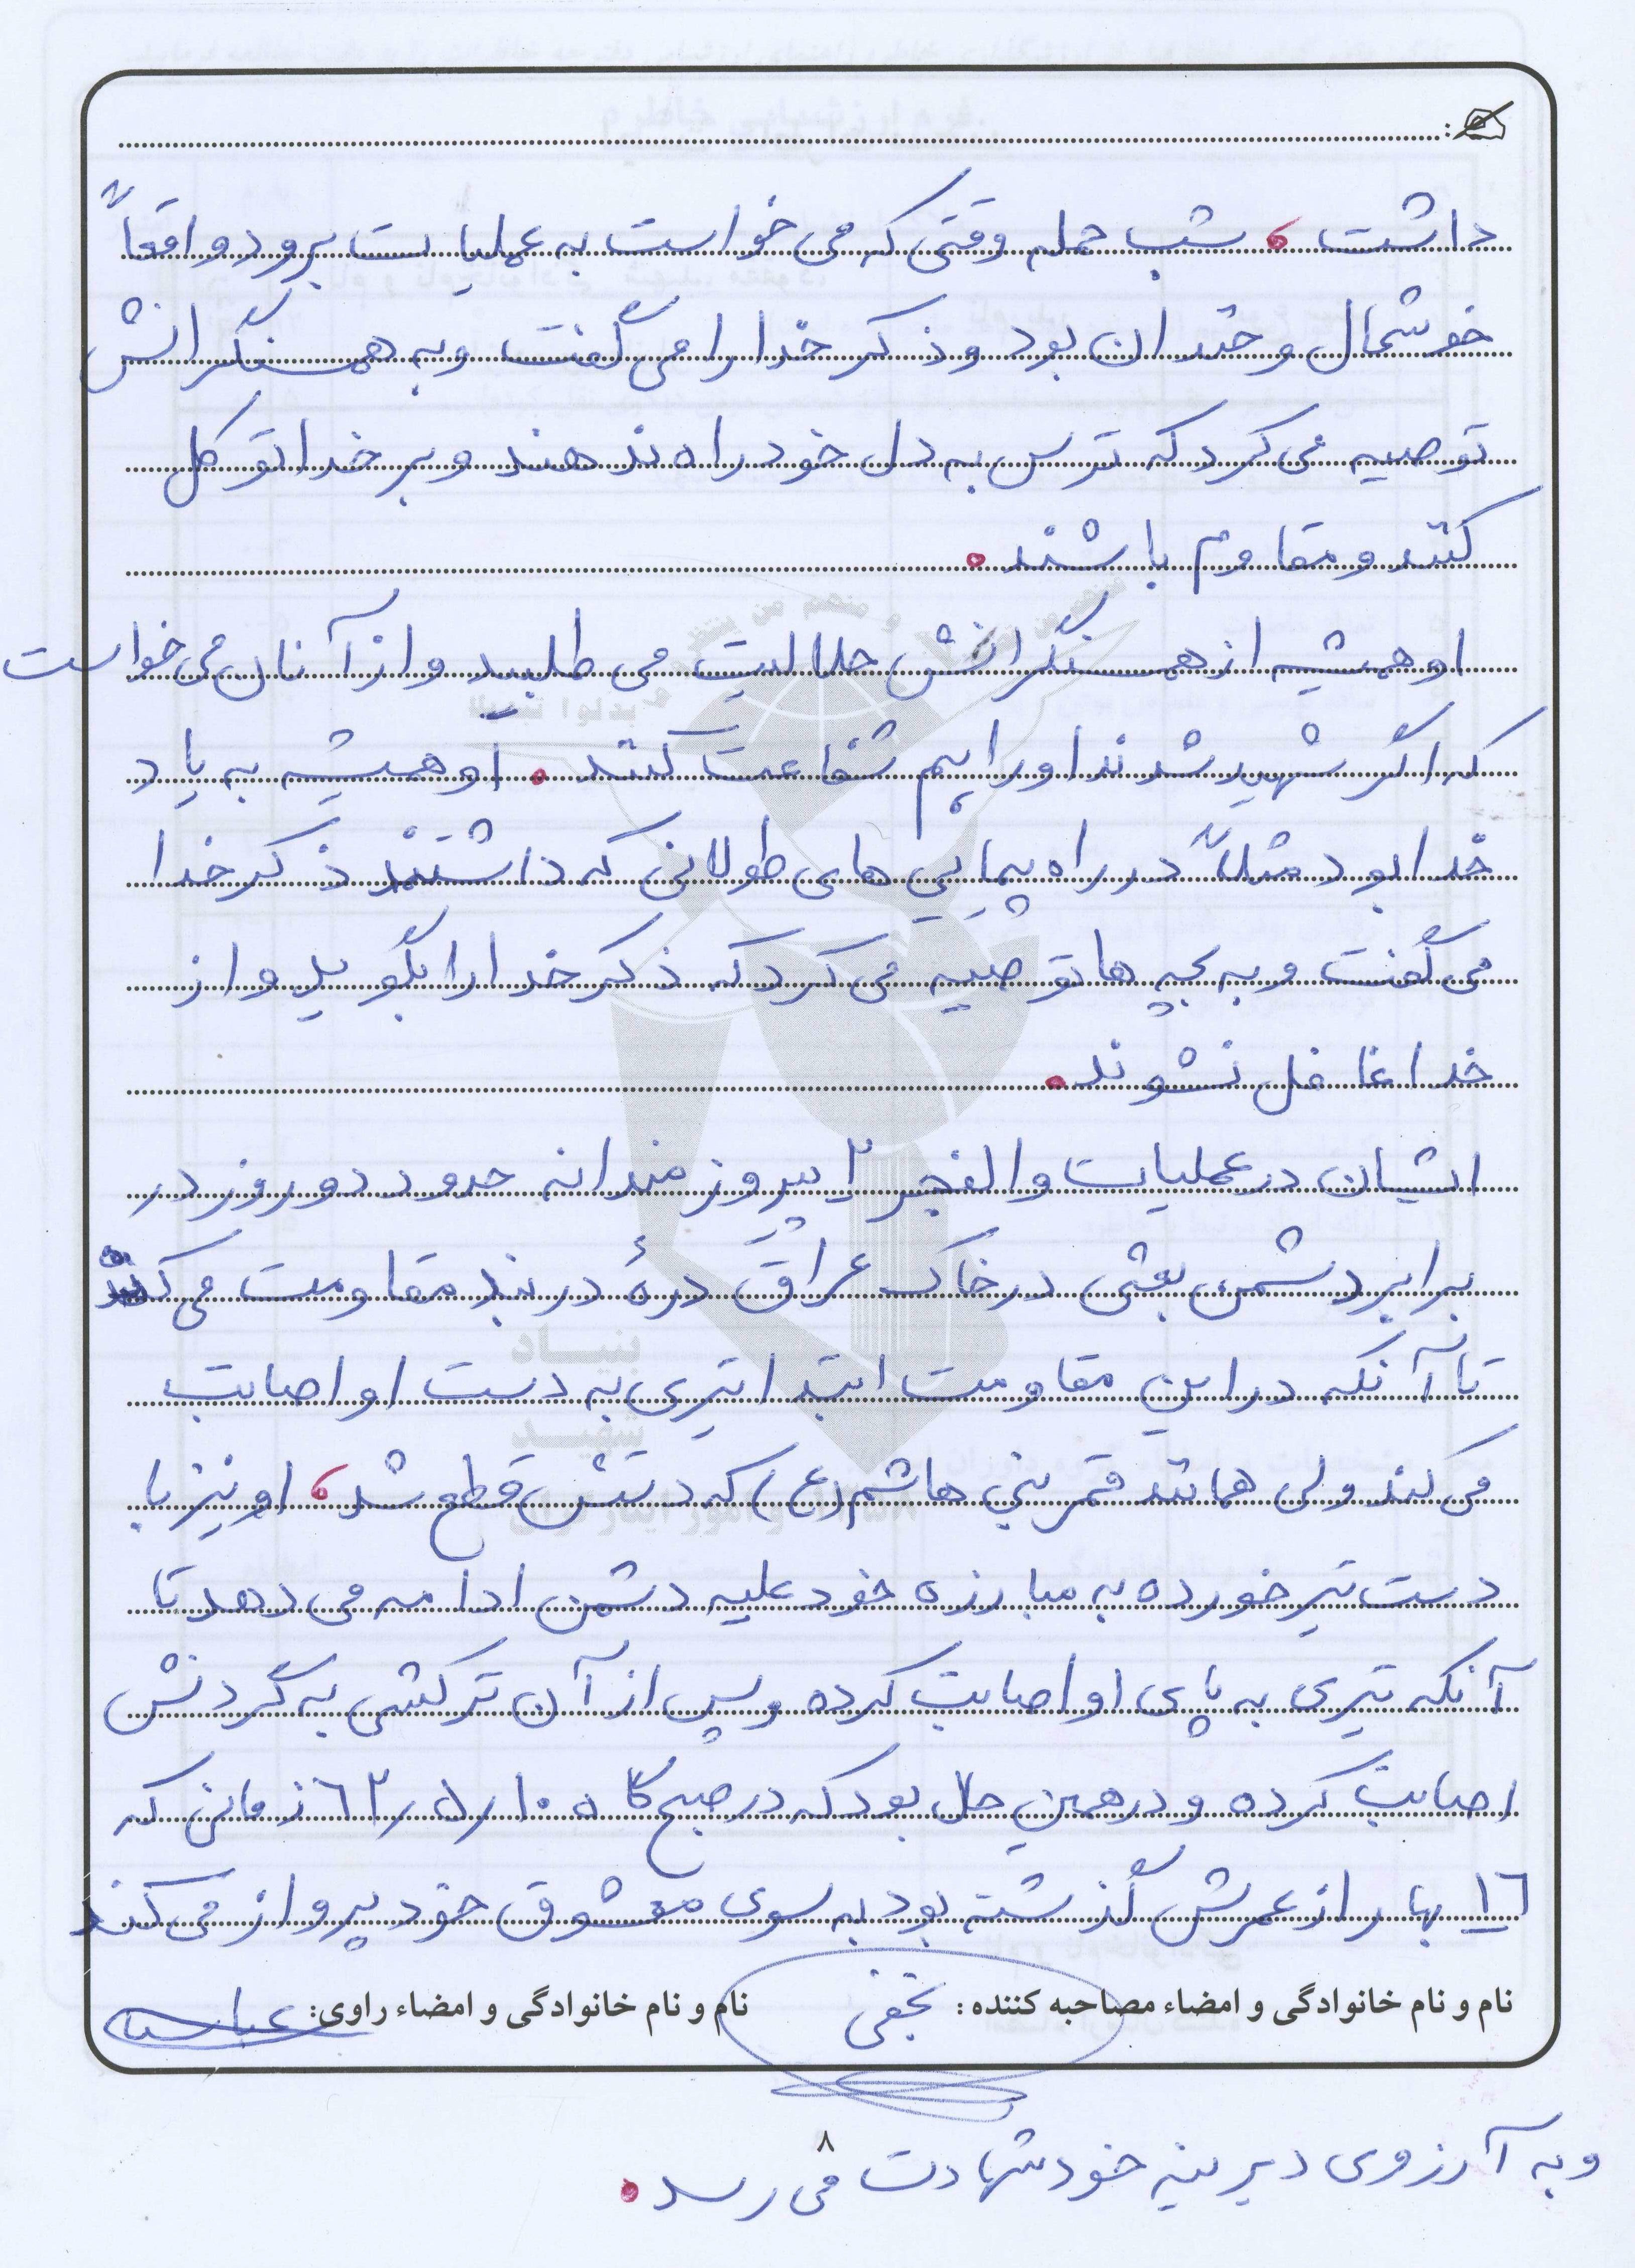 داشت، شب حمله وقتی که می خواست به عملیات برود واقعاً
خوشحال و خندان بود و ذکر خدا را می گفت و به همسنگرانش
توصیه می کرد که ترس به دل خود راه ندهند و بر خدا توکل
کنند و مقاوم باشند.
او همیشه از همسنگرانش حلالیت می طلبید و از آنان می خواست
که اگر شهید شدند او را هم شفاعت کنند. او همیشه به یاد
خدا بود مثلاً در راه پیمایی های طولانی که داشتند ذکر خدا
می گفت و به بچه ها توصیه می کرد که ذکر خدا را بگوید و از
خدا غافل نشوند.
ایشان در عملیات والفجر ۲ پیروزمندانه حدود دو روز در
برابر دشمن بعثی در خاک عراق درهٔ دربند مقاومت می کند
تا آنکه در این مقاومت ابتدا تیری به دست او اصابت
می کند ولی همانند قمر بنی هاشم (ع) که دستش قطع شد، او نیز با
دست تیر خورده به مبارزه خود علیه دشمن ادامه می دهد تا
آنکه تیری به پای او اصابت کرده و پس از آن ترکشی به گردنش
اصابت کرده و در همین حال بود که در صبحگاه ۶۲/۵/۱۰ زمانی که
۱۶ بهار از عمرش گذشته بود به سوی معشوق خود پرواز می کند
نام و نام خانوادگی و امضاء مصاحبه کننده: نجفی نام و نام خانوادگی و امضاء راوی:
۸
و به آرزوی دیرینه خود شهادت می رسد.